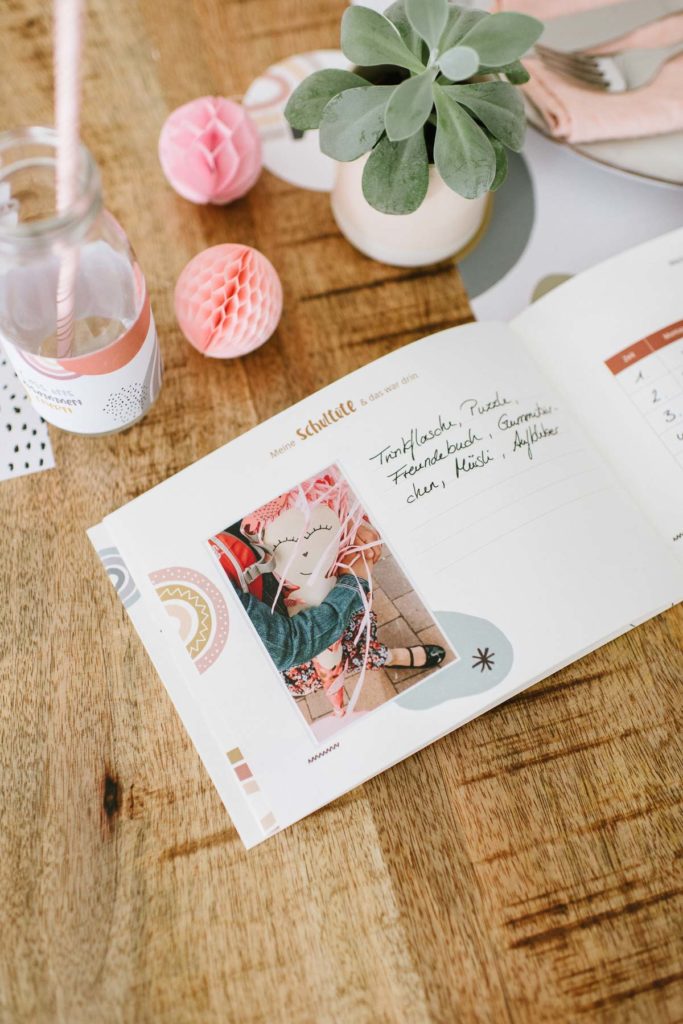 Meine Schultüte & das war drin
Trinkflasche, Puzzle,
Freundebuch, Gummitier-
chen, Müsli, Aufkleber
Zeit
1
2.
3.